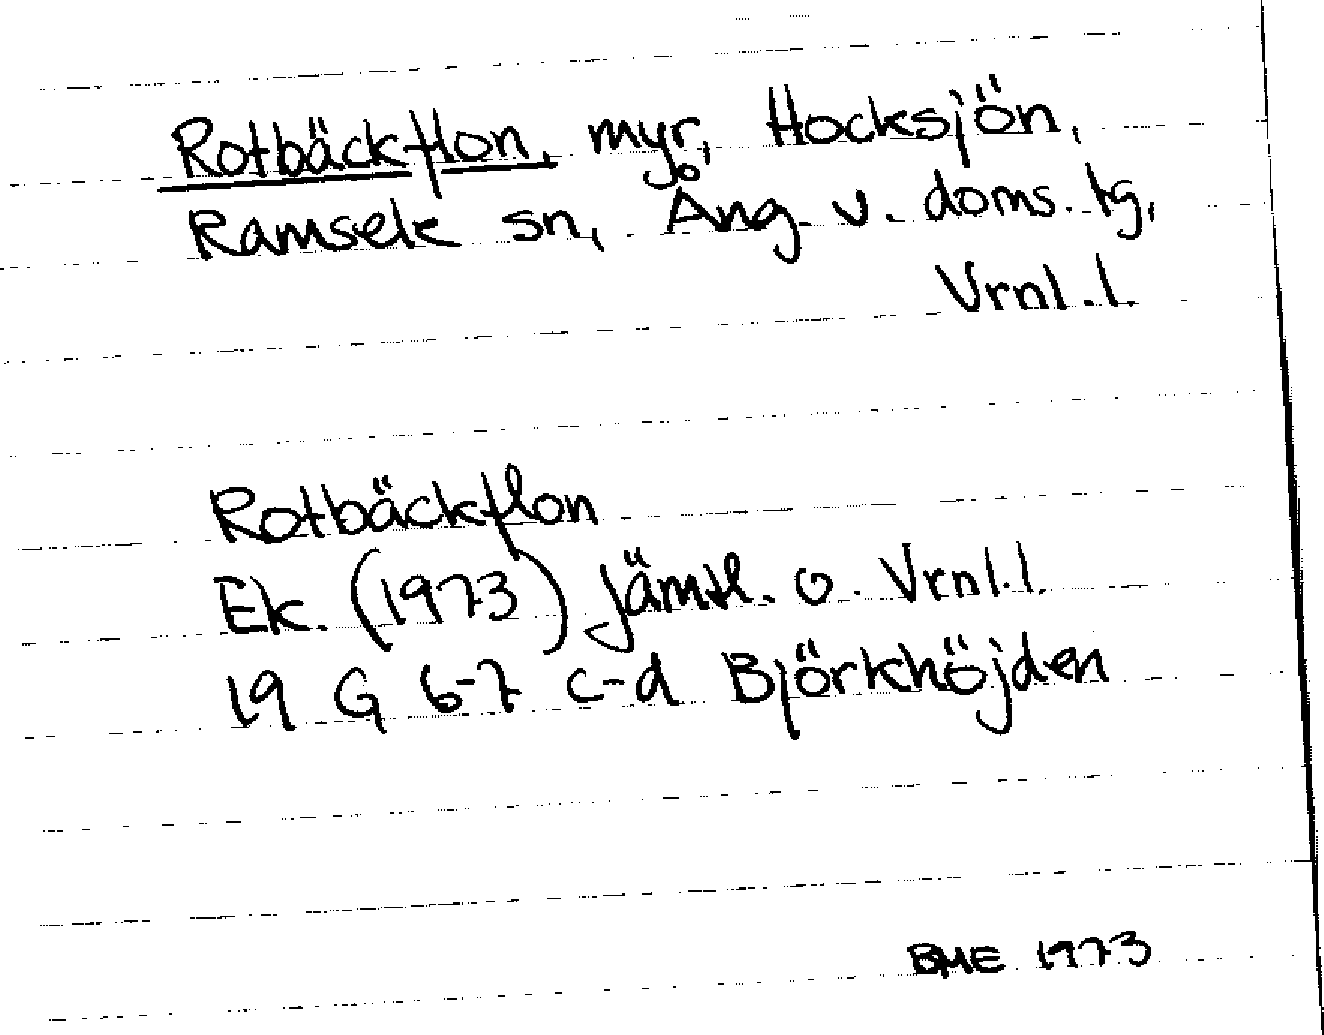 Rotbäckflon, myr, Hocksjön,
Ramsele sn, Ång. v. doms. tg,
Vrnl. l.
Rotbäckflon
Ek. (1973) Jämtl. o. Vrnl. l.
19 G 6-7 c-d Björkhöjden
BME 1973